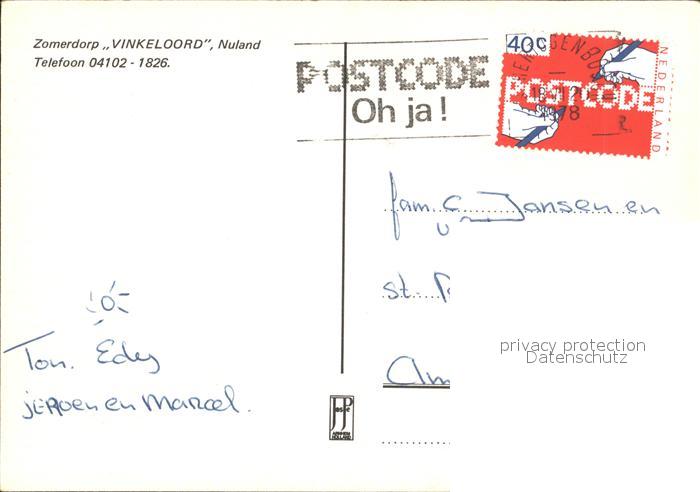 Zomerdorp „VINKELOORD”, Nuland
Telefoon 04102 - 1826.
POSTCODE
Oh ja!
40c
NEDERLAND
POSTCODE
1978
fam. C. Jansen en
st.
privacy protection
Datenschutz
Am
Ton. Edy
jeroen en Marcel.
JosPe
ARNHEM
HOLLAND